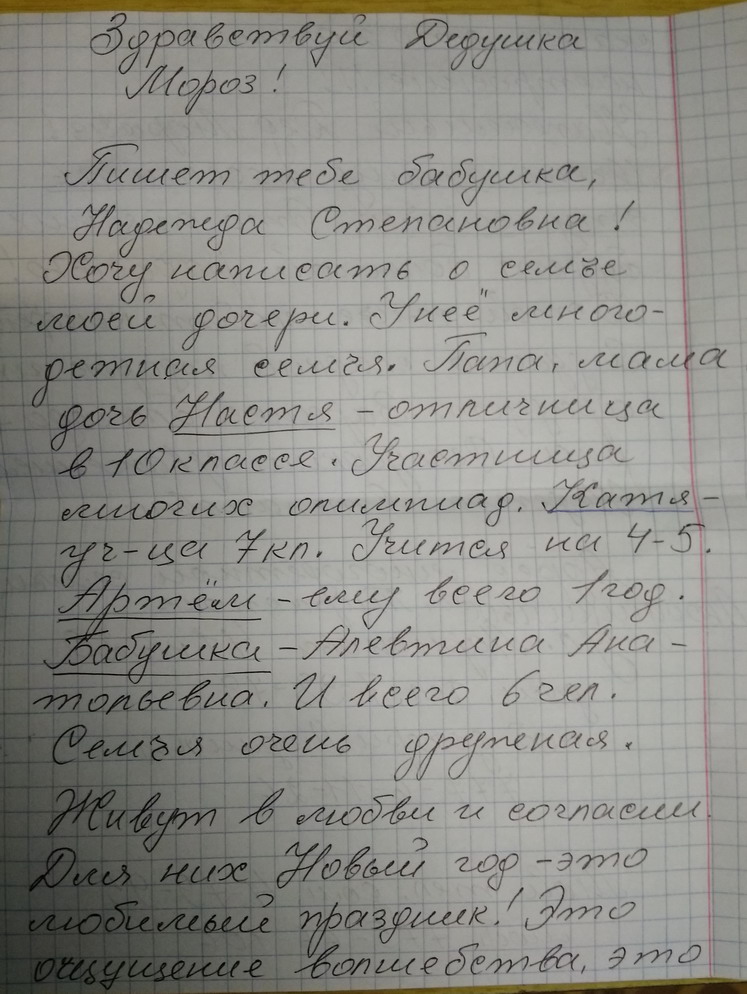 Здравствуй Дедушка
Мороз!
Пишет тебе бабушка,
Надежда Степановна!
Хочу написать о семье
моей дочери. У неё много-
детная семья. Папа, мама
дочь Настя - отличница
в 10 классе. Участница
многих олимпиад. Катя -
уч-ца 7 кл. Учится на 4-5.
Артём - ему всего 1 год.
Бабушка - Алевтина Ана-
тольевна. И всего 6 чел.
Семья очень дружная.
Живут в любви и согласии.
Для них Новый год - это
любимый праздник! Это
ощущение волшебства, это